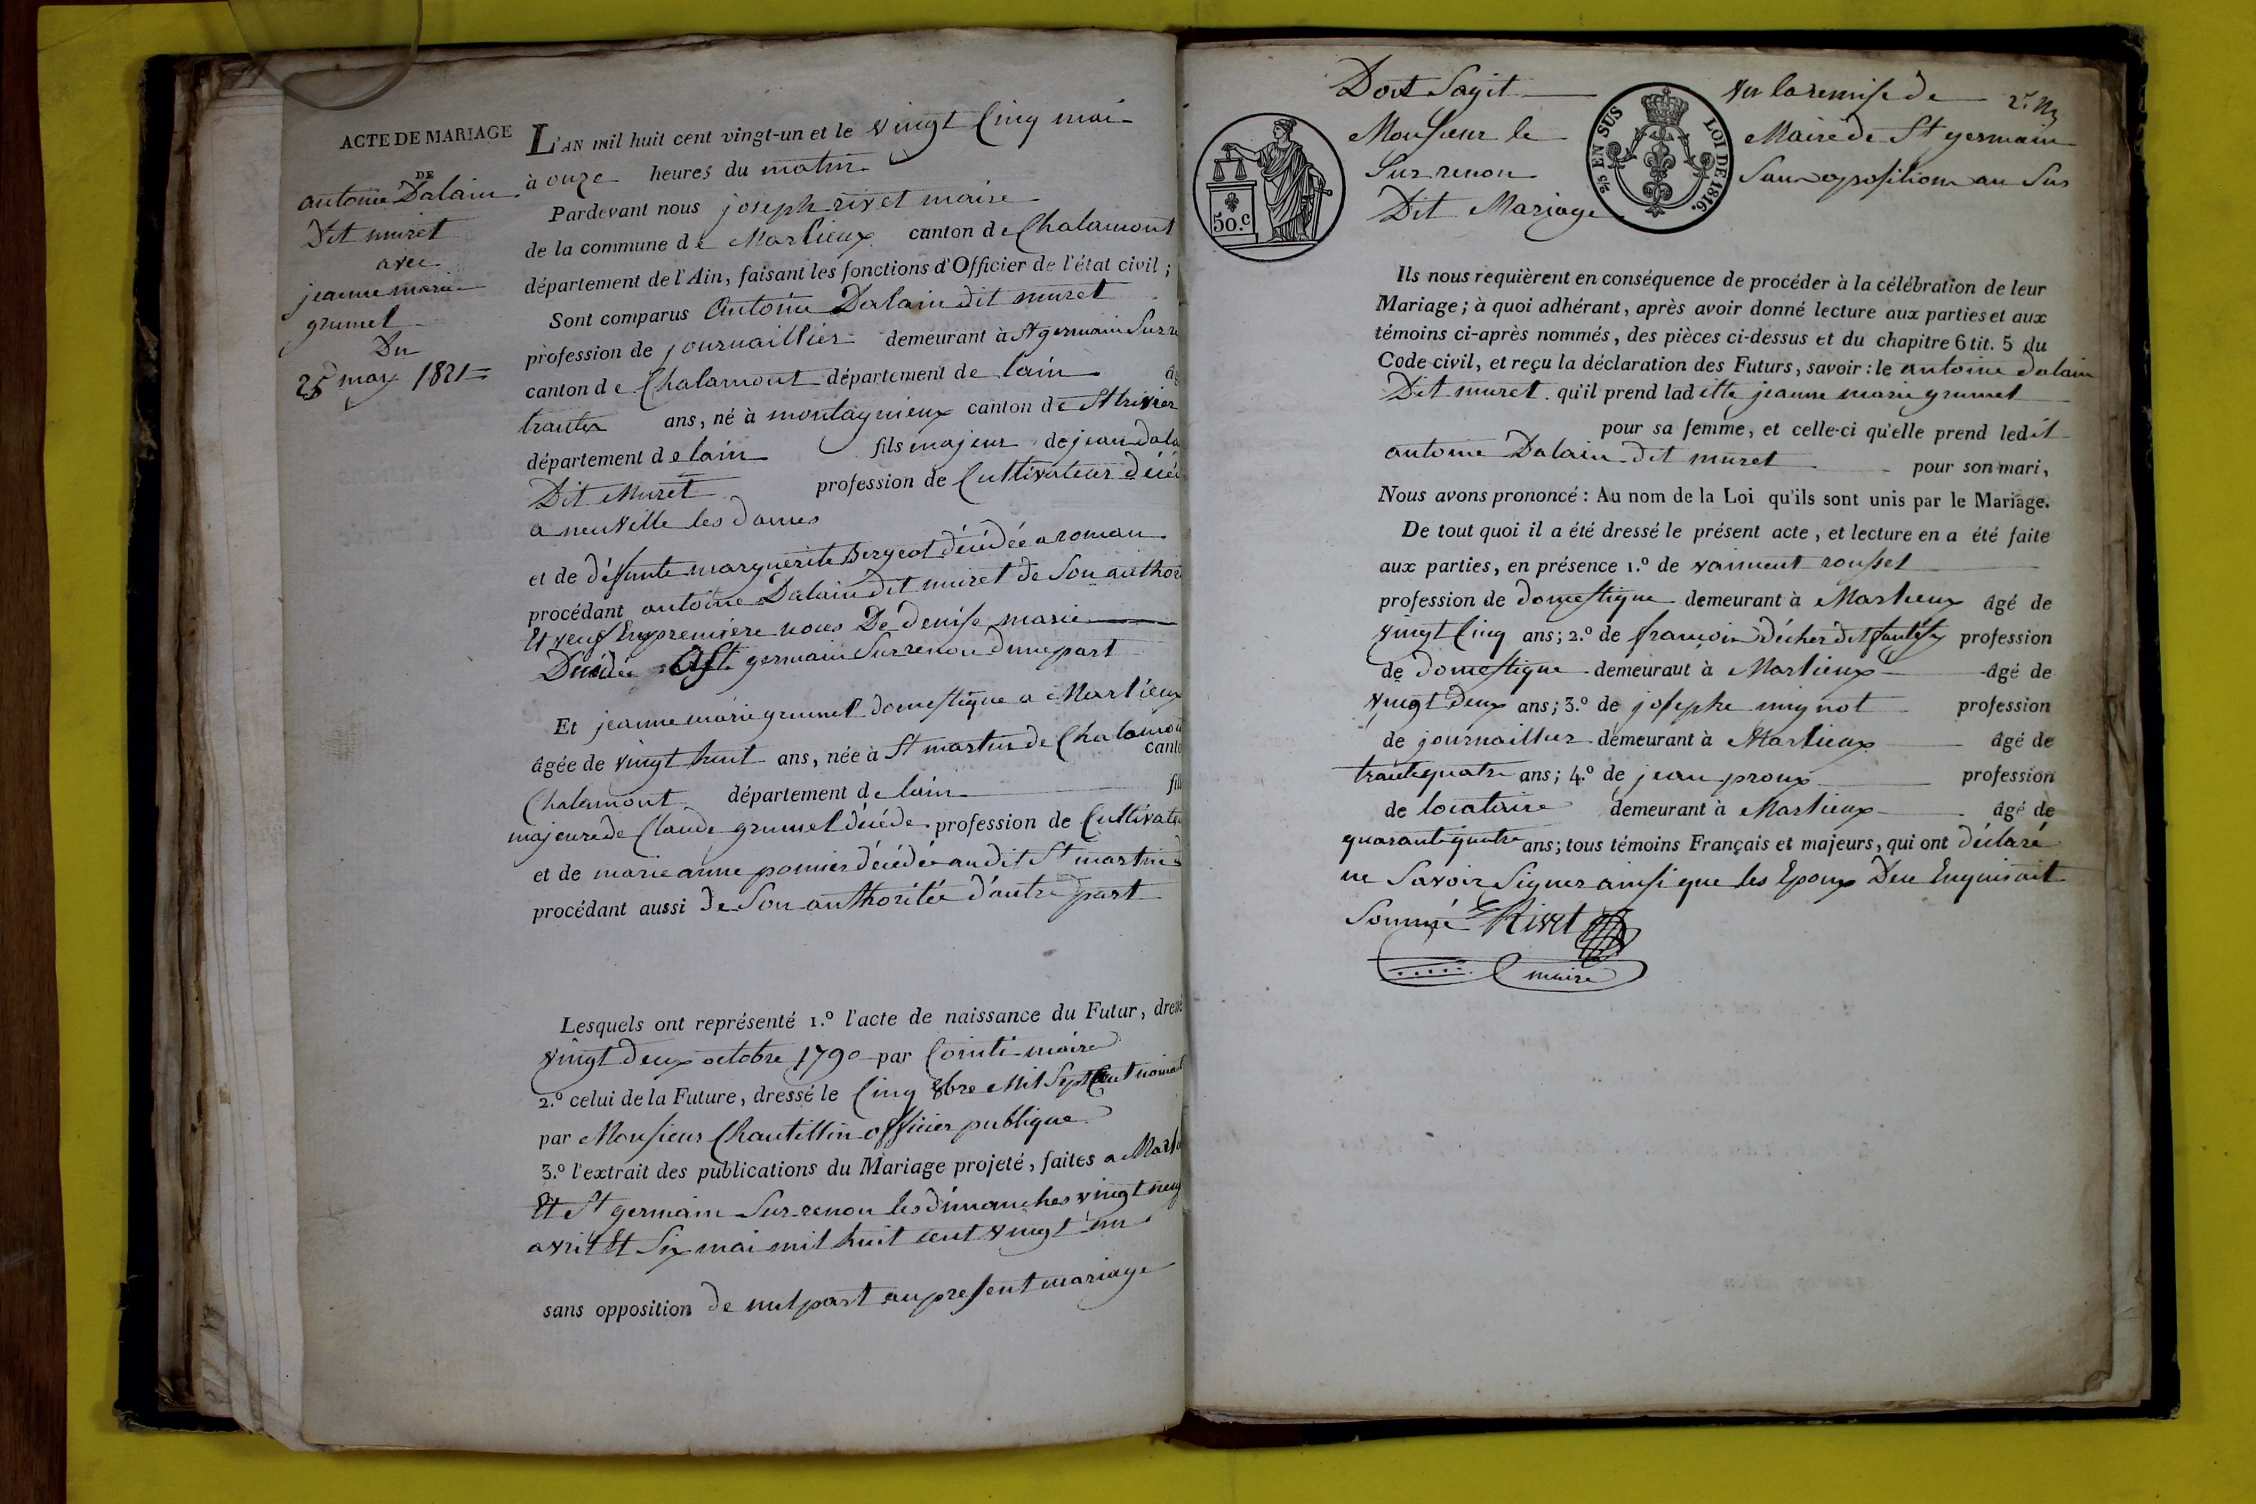 ACTE DE MARIAGE
DE
antoine Dalain
Dit muret
avec
jeanne marie
grumel
Du
25 may 1821
L'AN mil huit cent vingt-un et le vingt Cinq mai
à onze heures du matin
Pardevant nous joseph rivet maire
de la commune de Marlieux canton de Chalamont
département de l'Ain, faisant les fonctions d'Officier de l'état civil;
Sont comparus Antoine Dalain dit muret
profession de journaillier demeurant à St germain Sur re
canton de Chalamont département de lain âg
trante ans, né à montagnieux canton de St trivier
département de lain fils majeur de jean dala
Dit Muret profession de Cultivateur décé
a neuville les dames
et de défunte marguerite Bergeot décédée a roman
procédant antoine Dalain dit muret de Son author
Et veuf En première noces De denise marie
Décédée A St germain Sur renon dune part
Et jeanne marie grumel domestique a Marlieux
âgée de vingt huit ans, née à St martin de Chalamon
cant
Chalamont département de lain fil
majeure de Claude grumel décéde profession de Cultivate
et de marie anne pomier décédée au dit St martin d
procédant aussi de Son authoritée d'autre part
Lesquels ont représenté 1.º l'acte de naissance du Futur, dressé
vingt deux octobre 1790 par Cointi maire
2.º celui de la Future, dressé le Cinq 8bre Mil Sept Cent
par Monsieur Chantillin officier publique
3.º l'extrait des publications du Mariage projeté, faites a Marli
Et St germain Sur renon les dimanches vingt neuf
avril Et Six mai mil huit cent vingt un
sans opposition de nul part au present mariage
Dont Sagit vu la remise de
Monsieur le Maire de St germain
Sur renon Sans oposition au Sus
Dit Mariage
50.c
5/c EN SUS LOI DE 1816.
Ils nous requièrent en conséquence de procéder à la célébration de leur
Mariage; à quoi adhérant, après avoir donné lecture aux parties et aux
témoins ci-après nommés, des pièces ci-dessus et du chapitre 6 tit. 5 du
Code civil, et reçu la déclaration des Futurs, savoir: le antoine dalain
Dit muret qu'il prend laditte jeanne marie grumel
pour sa femme, et celle-ci qu'elle prend ledit
antoine Dalain dit muret pour son mari,
Nous avons prononcé: Au nom de la Loi qu'ils sont unis par le Mariage.
De tout quoi il a été dressé le présent acte, et lecture en a été faite
aux parties, en présence 1.º de roussel
profession de domestique demeurant à Marlieux âgé de
vingt Cinq ans; 2.º de françois décher dit profession
de domestique demeurant à Marlieux âgé de
vingt deux ans; 3.º de josephe mignot profession
de journaillier demeurant à Marlieux âgé de
trante quatre ans; 4.º de jean proux profession
de locataire demeurant à Marlieux âgé de
quarante quatre ans; tous témoins Français et majeurs, qui ont déclaré
ne Savoir Signer ainsi que les Epoux Deu Enquis ait
Sommé Rivet
maire